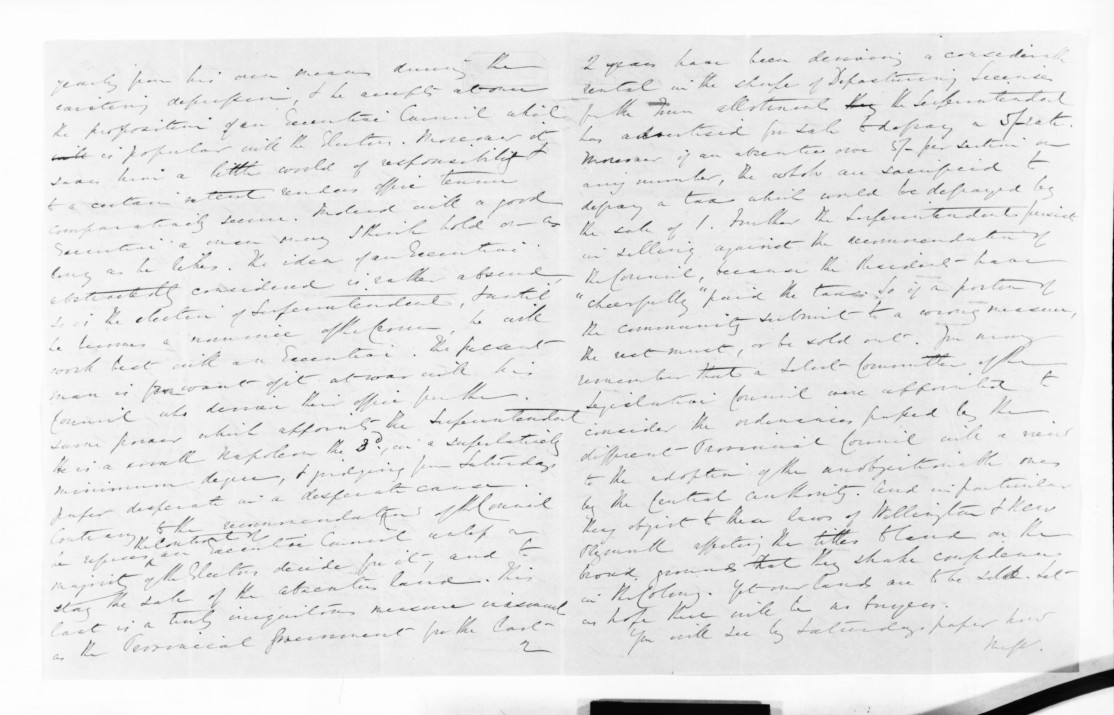 yearly from his own means during the
existing depression, & he accepts at once
the proposition of an Executive Council which
is popular with the Electors. Moreover it
saves him a little world of responsibility &
to a certain extent renders office tenure
comparatively secure. Indeed with a good
Executive a man may I think hold on as
long as he likes. The idea of an Executive
abstractedly considered is rather absurd
so is the election of Superintendent, & until
he becomes a nominee of the Crown, he will
work best with an Executive. The present
man is from want of it at war with his
Council who derive their office from the
same power which appoints the Superintendent
He is a small Napoleon the 3d, in a superlatively
minimum degree, & judging from Saturdays
paper desperate in a desperate cause.
Contrary to the recommendations of the Council
he refuses the control of an Executive Council unless a
majority of the Electors decide for it, and to
stay the sale of the absentees land. This
last is a truly iniquitous measure inasmuch
as the Provincial Government for the last
2
2 years have been deriving a considerable
rental in the shape of Depasturing Licenses
for the allotments the Superintendent
has advertised for sale to defray a 5/- rate.
Moreover if an absentee owe 5/- per section on
any number, the whole are sacrificed to
defray a tax which would be defrayed by
the sale of 1. Further the Superintendent persist
in selling against the recommendation of
the Council, because the Residents have
"cheerfully" paid the tax. So if a portion of
the community submit to a wrong measure,
the rest must, or be sold out. You may
remember that a Select Committee of the
Legislative Council were appointed to
consider the ordinances passed by the
different Provincial Council with a view
to the adoption of the unobjectionable ones
by the Central authority. And in particular
they object to these laws of Wellington & New
Plymouth affecting the titles to land on the
broad ground that they shake confidence
in the Colony. Yet our lands are to be sold. Let
us hope there will be no buyers.
You will see by Saturdays paper how